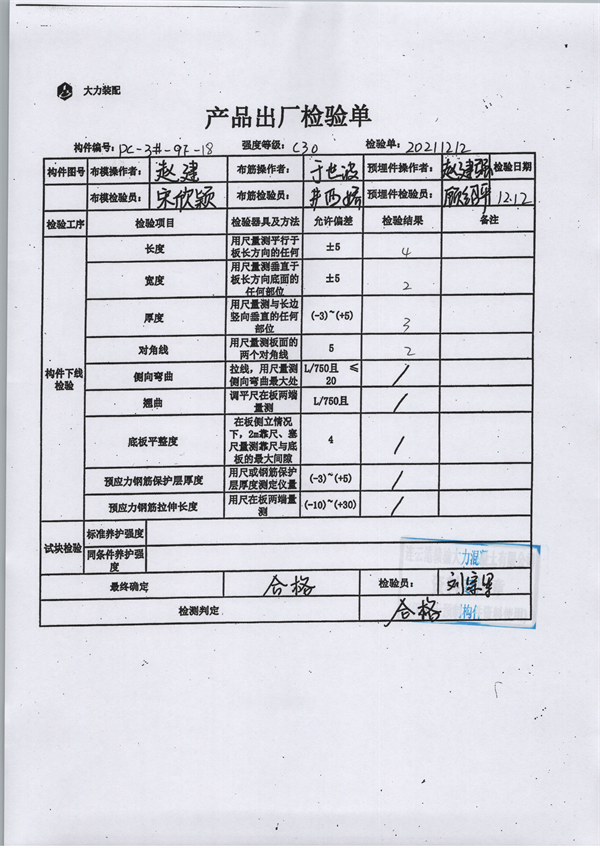 大力装配
产品出厂检验单
构件编号: PC-3#-9F-18 强度等级: C30 检验单: 20211212
构件图号 布模操作者: 赵建 布筋操作者: 于世波 预埋件操作者: 赵建强 检验日期
布模检验员: 宋欣颖 布筋检验员: 预埋件检验员: 12.12
检验工序 检验项目 检验器具及方法 允许偏差 检验结果 备注
构件下线检验
长度 用尺量测平行于板长方向的任何 ±5 4
宽度 用尺量测垂直于板长方向底面的任何部位 ±5 2
厚度 用尺量测与长边竖向垂直的任何部位 (-3)~(+5) 3
对角线 用尺量测板面的两个对角线 5 2
侧向弯曲 拉线，用尺量测侧向弯曲最大处 L/750且 ≤20 /
翘曲 调平尺在板两端量测 L/750且 /
底板平整度 在板侧立情况下，2m靠尺、塞尺量测靠尺与底板的最大间隙 4 /
预应力钢筋保护层厚度 用尺或钢筋保护层厚度测定仪量 (-3)~(+5) /
预应力钢筋拉伸长度 用尺在板两端量测 (-10)~(+30) /
试块检验 标准养护强度
同条件养护强度
最终确定 合格 检验员:
检测判定 合格